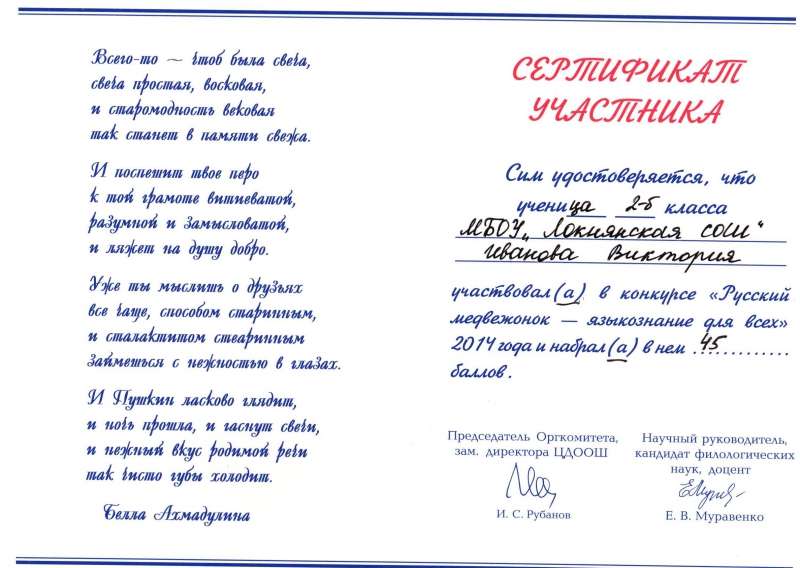 Всего-то — чтоб была свеча,
свеча простая, восковая,
и старомодность вековая
так станет в памяти свежа.
И поспешит твое перо
к той грамоте витиеватой,
разумной и замысловатой,
и ляжет на душу добро.
Уже ты мыслишь о друзьях
все чаще, способом старинным,
и сталактитом стеаринным
займешься с нежностью в глазах.
И Пушкин ласково глядит,
и ночь прошла, и гаснут свечи,
и нежный вкус родимой речи
так чисто губы холодит.
Белла Ахмадулина
СЕРТИФИКАТ
УЧАСТНИКА
Сим удостоверяется, что
ученица 2-б класса
МБОУ „Локнянская СОШ“
Иванова Виктория
участвовал(а) в конкурсе «Русский
медвежонок — языкознание для всех»
2014 года и набрал(а) в нем 45............
баллов.
Председатель Оргкомитета,
зам. директора ЦДООШ
И. С. Рубанов
Научный руководитель,
кандидат филологических
наук, доцент
Е. В. Муравенко